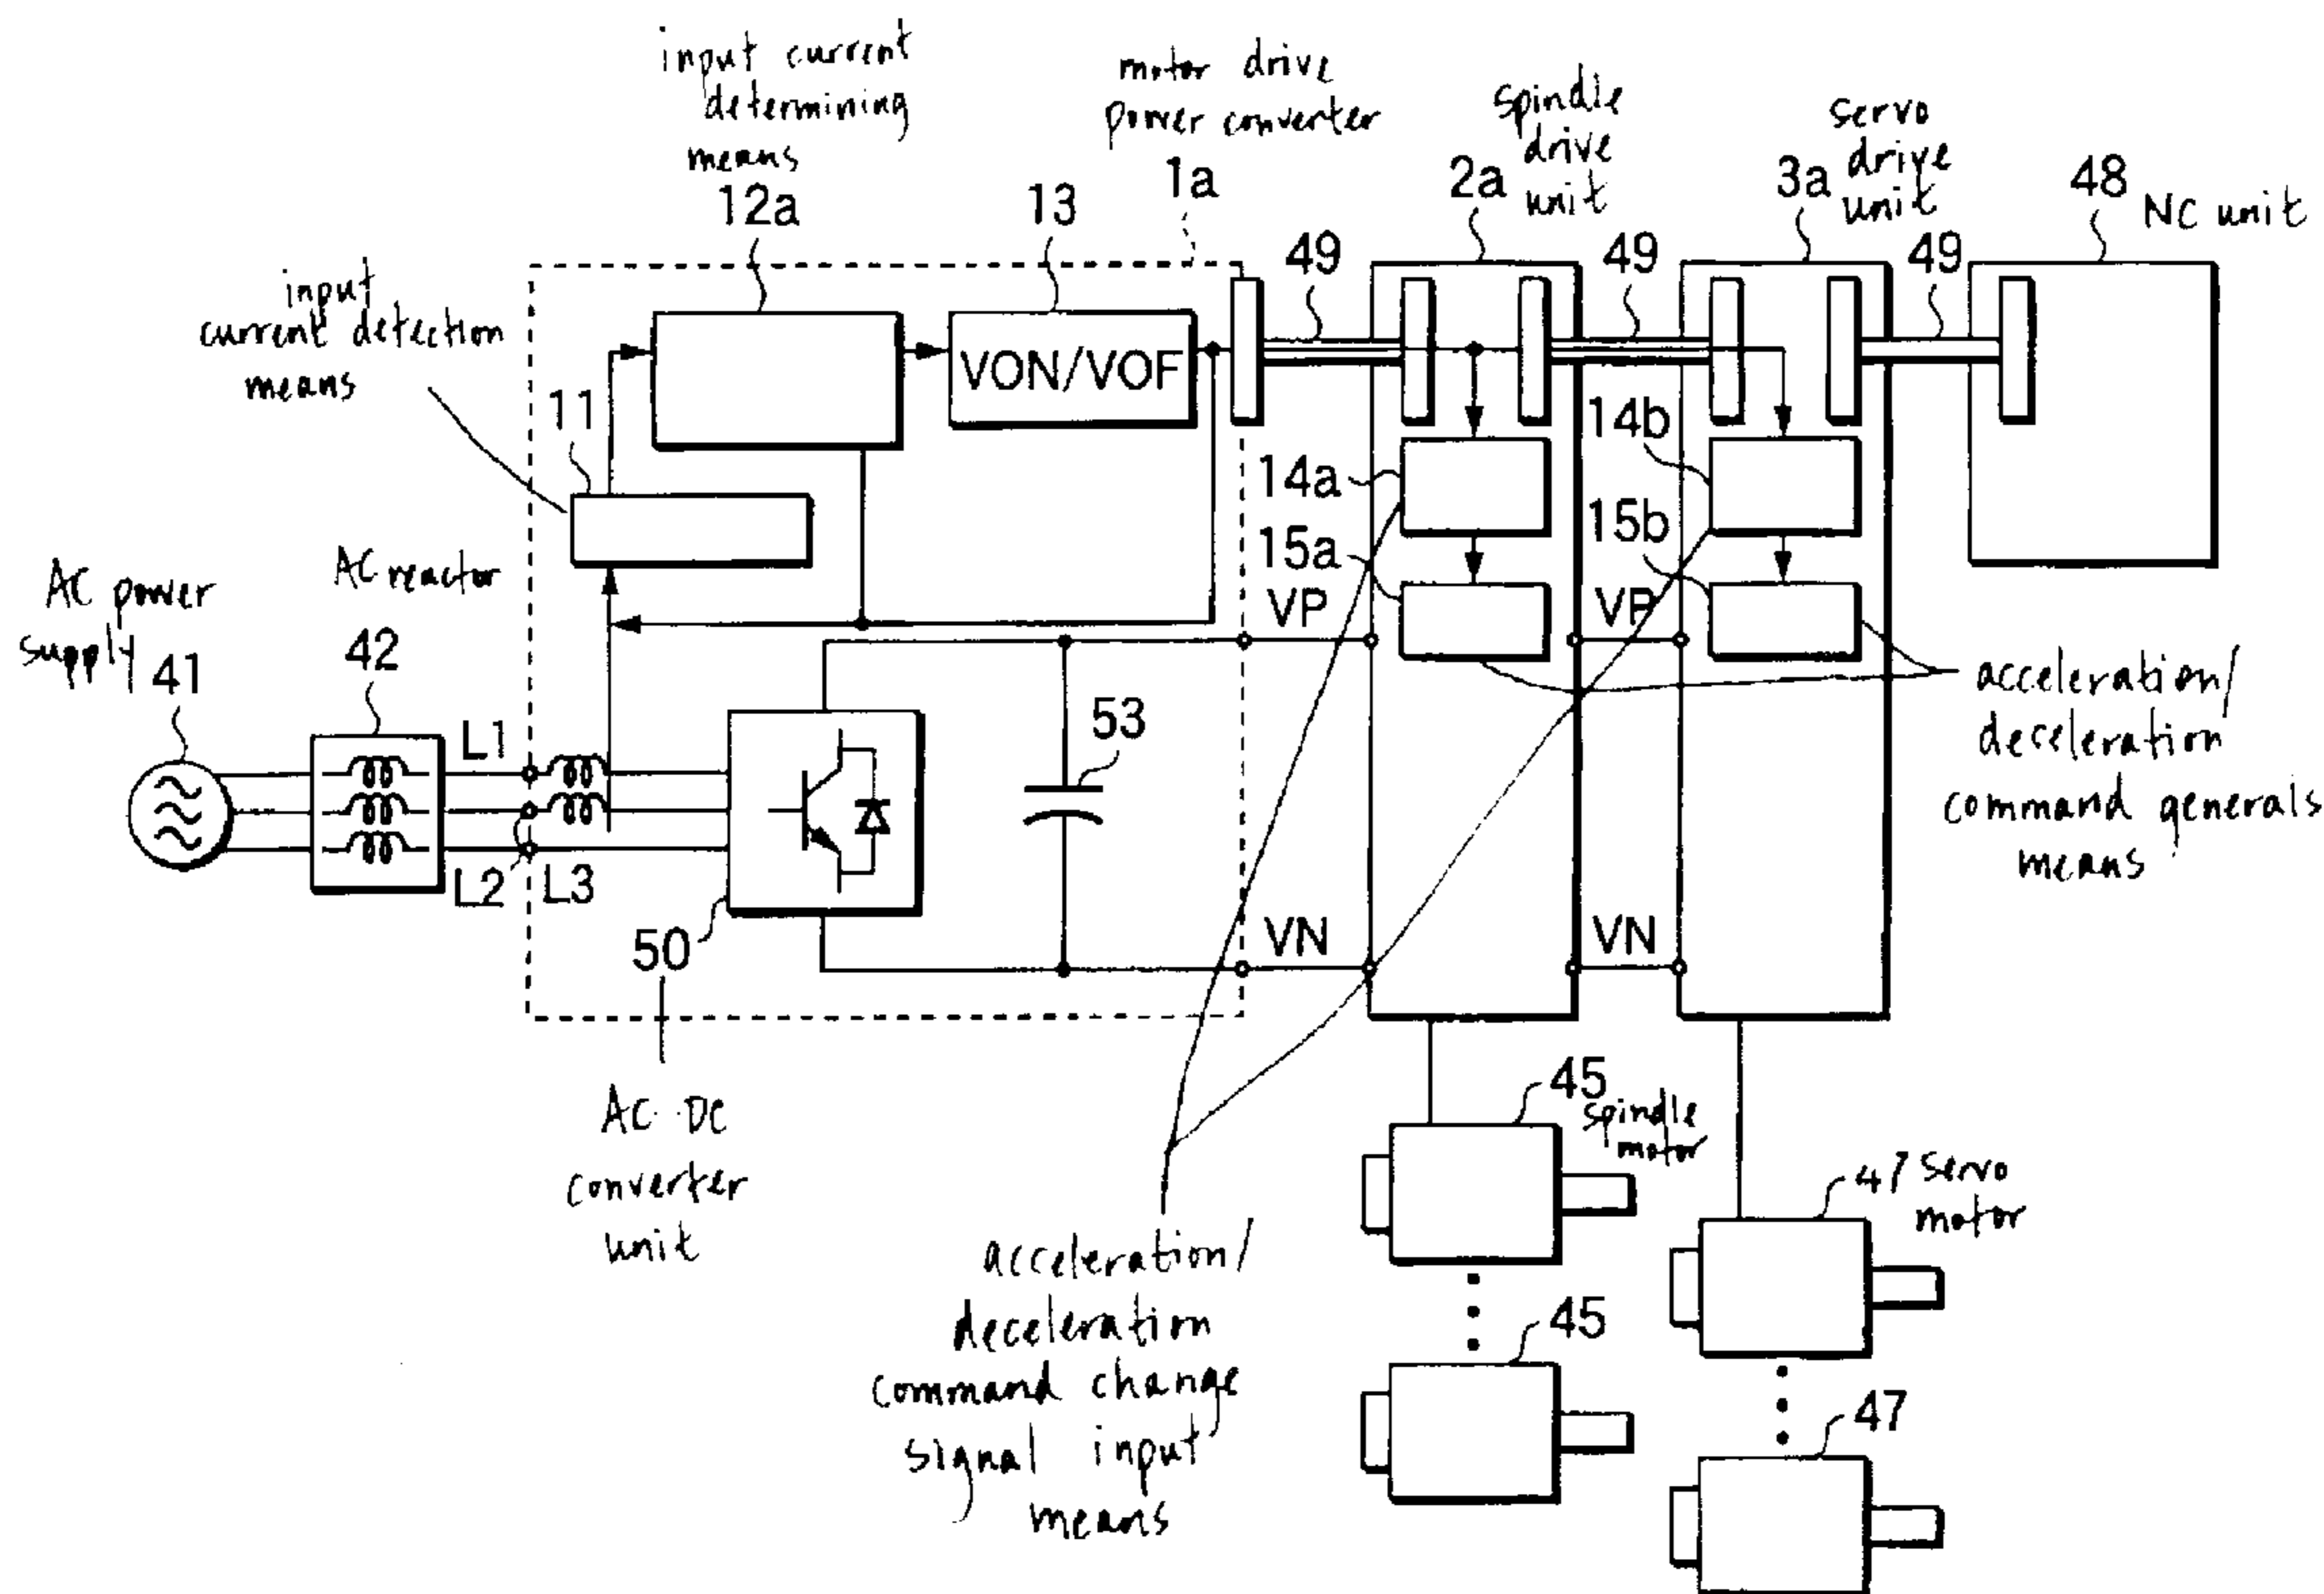 input current
determining
means
12a
motor drive
power converter
1a
spindle
drive
unit
2a
servo
drive
unit
3a
48
NC unit
13
49
49
49
input
current detection
means
VON/VOF
11
14a
14b
15a
15b
VP
VP
AC power
supply
41
AC reactor
42
L1
L2
L3
53
50
VN
VN
acceleration/
deceleration
command generals
means
AC-DC
converter
unit
45
spindle
motor
47 servo
motor
acceleration/
deceleration
command change
signal input
means
45
47